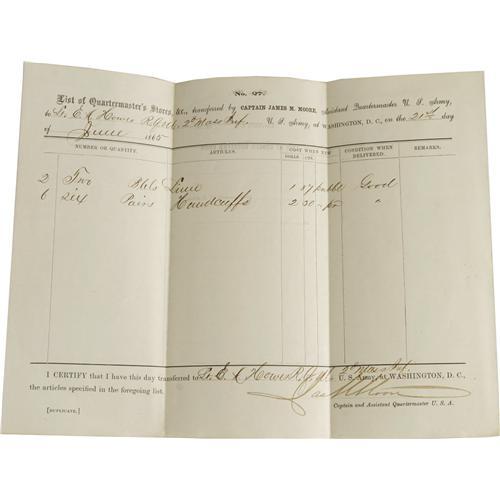 No. 27.
List of Quartermaster's Stores, &c., transferred by CAPTAIN JAMES M. MOORE, Assistant Quartermaster U. S. Army,
to Lt. E. Howes R.Q.M. 2d Mass Inf. U. S. Army, at WASHINGTON, D. C., on the 21st day
of June 1865
NUMBER OR QUANTITY. ARTICLES. COST WHEN NEW CONDITION WHEN DELIVERED. REMARKS.
DOLLS. CTS.
2 Two Bbls Lime 1 87 Good
6 Six Pairs Handcuffs 2 50 "
I CERTIFY that I have this day transferred to Lt. E. Howes R.Q.M. 2d Mass Inf. U. S. Army, at WASHINGTON, D. C.,
the articles specified in the foregoing list.
Jas M Moore
Captain and Assistant Quartermaster U. S. A.
[DUPLICATE.]